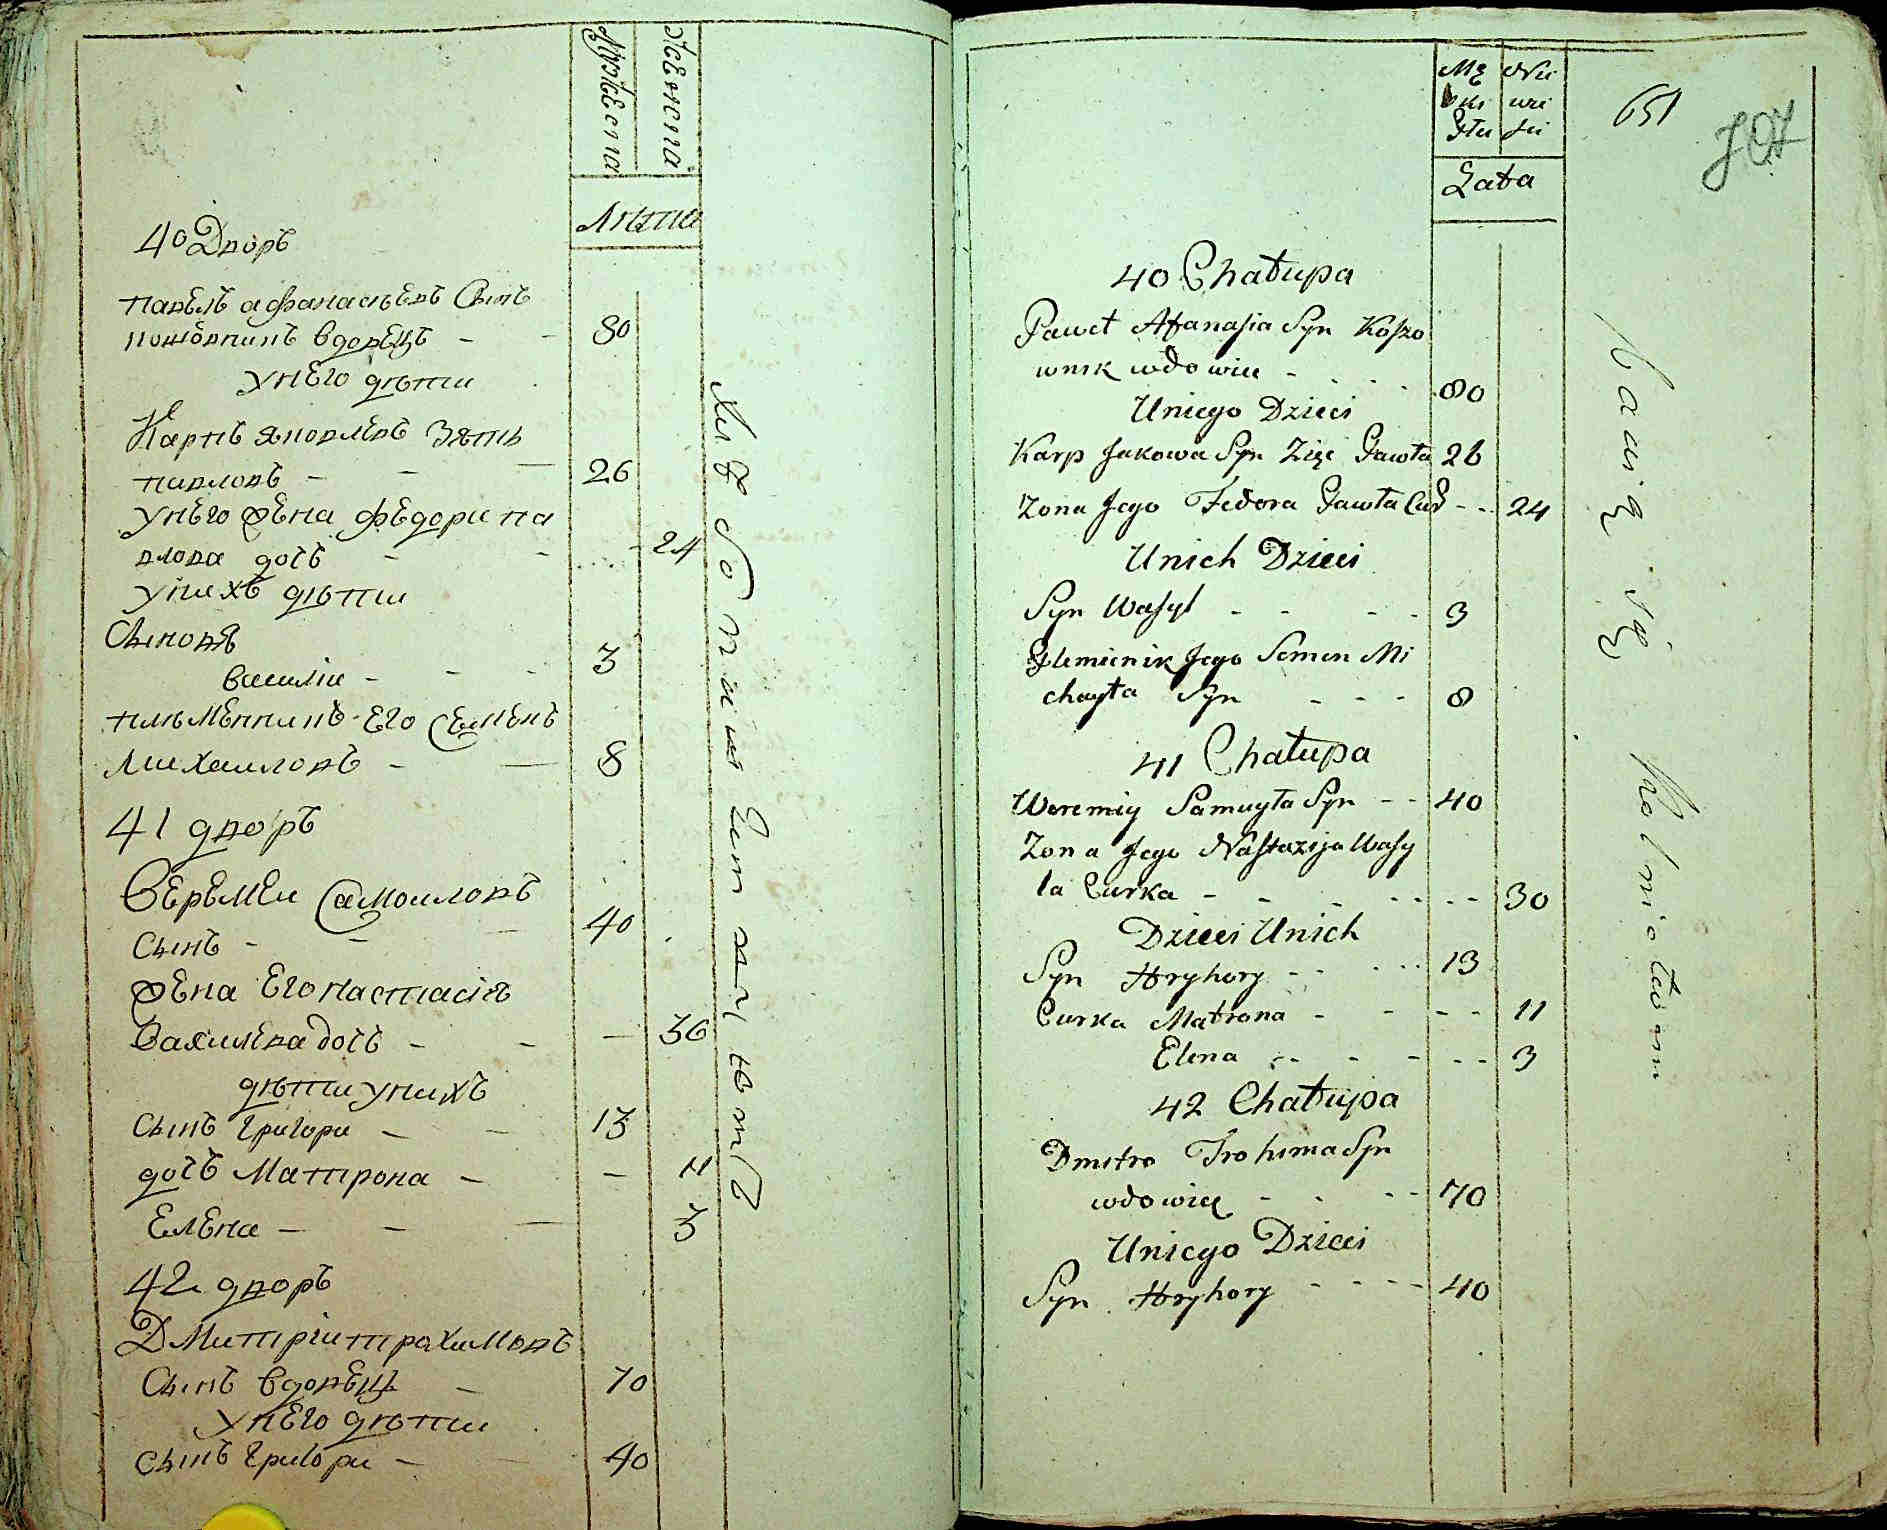 Мужеска
Женска
Лѣта
40 Дворъ
павелъ афанасьевъ Сынъ
кошовникъ вдовецъ - - 80
у него дѣти
Карпъ яковлевъ Зять
павловъ - - - 26
у него жена федора па
влова дочъ - - 24
у нихъ дѣти
Сыновя
василiи - - - 3
племенникъ Его Семенъ
михаиловъ - - 8
41 дворъ
Веремеи Самоиловъ
сынъ - - - 40
жена Его настасiя
Васильева дочъ - - - 36
дѣти у нихъ
Сынъ григори - - 13
дочъ Матрона - - 11
Елена - - - 3
42 дворъ
Дмитрiи трахимовъ
Сынъ вдовецъ - 70
у него дѣти
Сынъ григори - - 40
Mę
ski
Płci
Nie
wie
sci
Lata
651
707
40 Chałupa
Paweł Afanasia Syn Koszo
wnik wdowiec - - - 80
U niego Dzieci
Karp Jakowa Syn Zięć Pawła 26
Zona Jego Fedora Pawła Cur - - 24
U nich Dzieci
Syn Wasyl - - - - 3
Plemienik Jego Semen Mi
chayła Syn - - - 8
41 Chałupa
Weremiy Samuyła Syn - - 40
Zona Jego Nastazija Wasy
la Curka - - - - - - 30
Dzieci U nich
Syn Hryhory - - - - 13
Curka Matrona - - - - 11
Elena - - - - - 3
42 Chałupa
Dmitro Trohima Syn
wdowiec - - - - 70
U niego Dzieci
Syn Hryhory - - - - 40